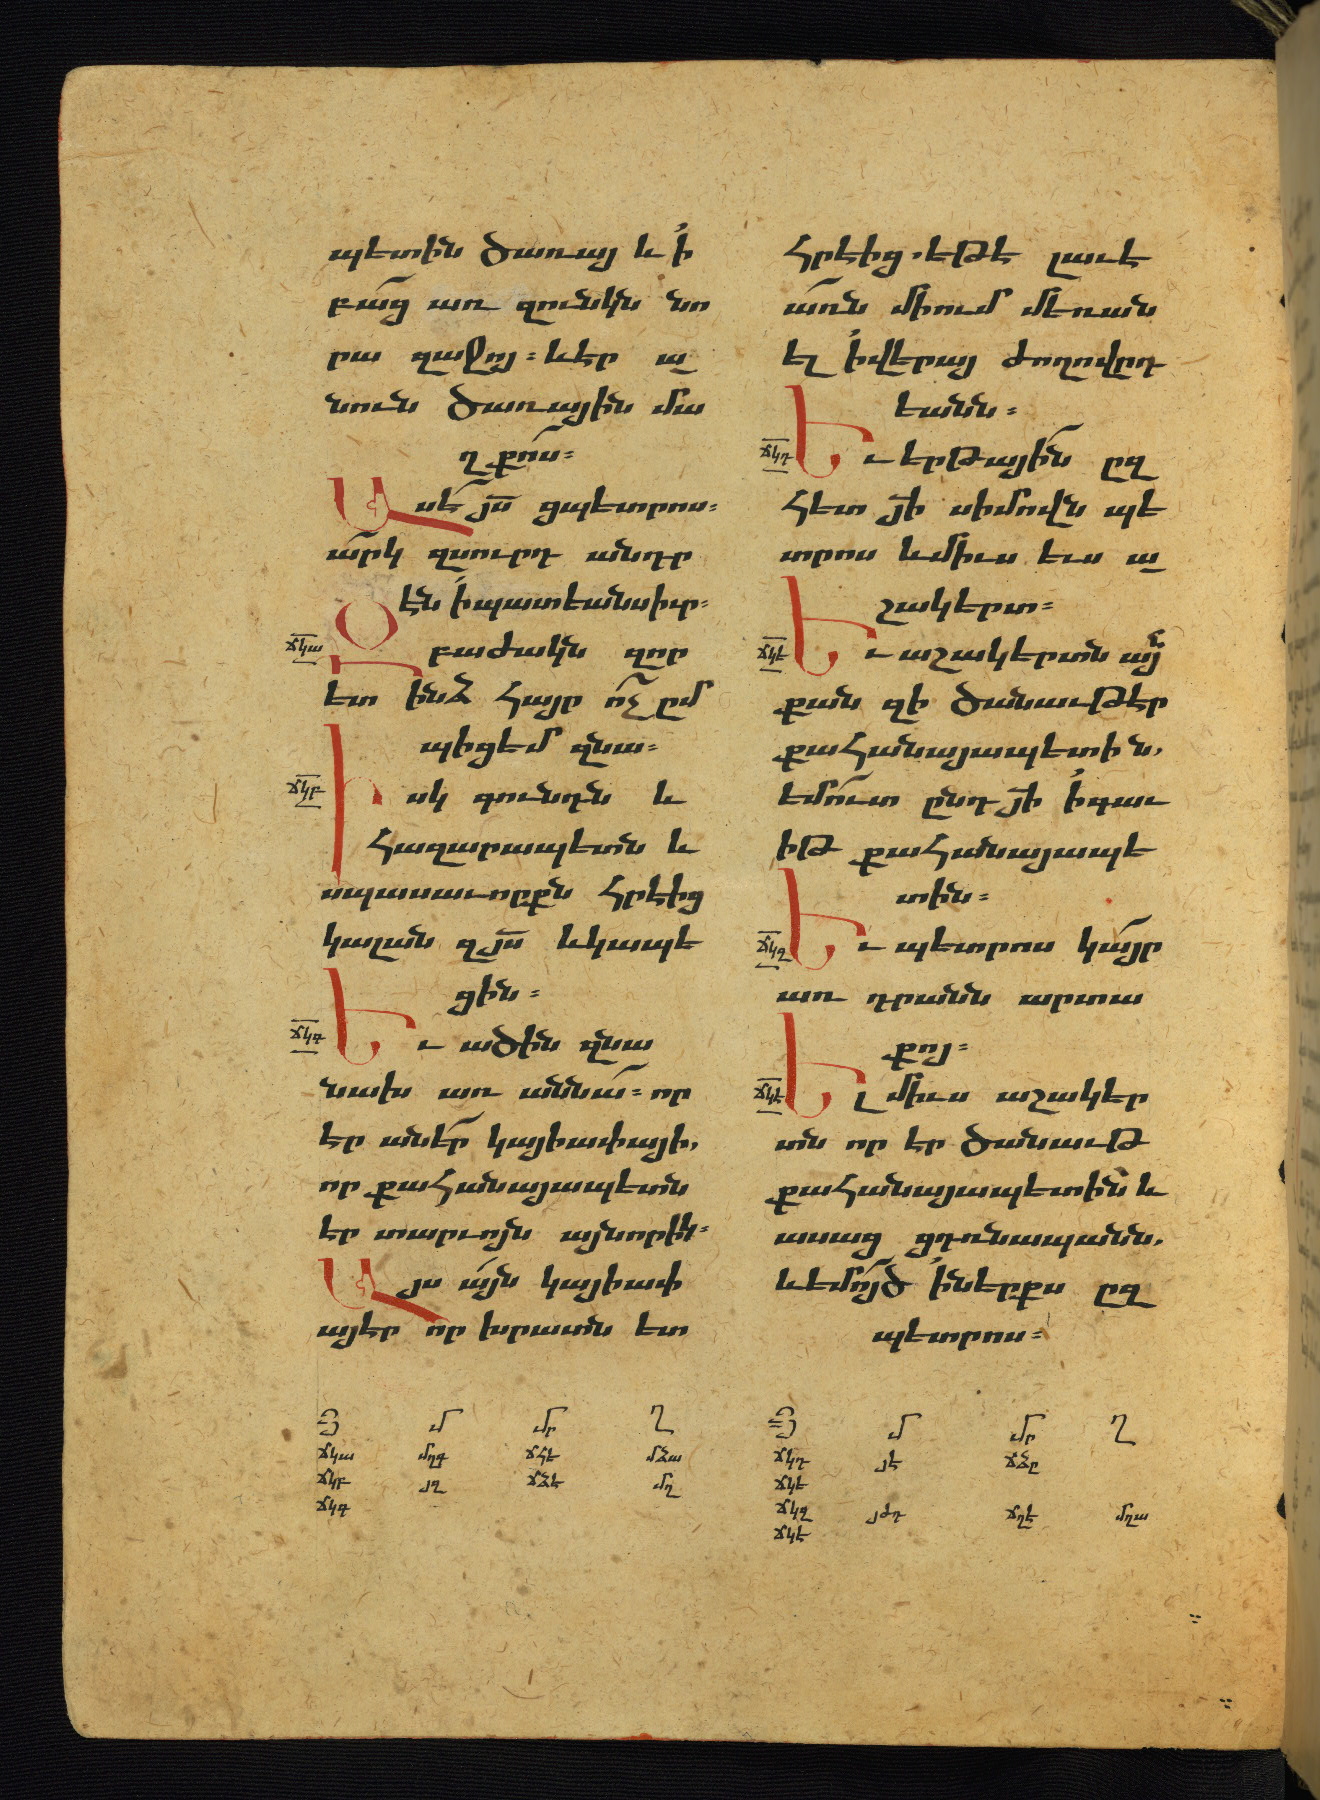 պետին ծառայ և ի
բաց առ զունկն նո
րա զաջոյ։ և էր ա
նուն ծառային մա
ղքոս։
Ասէ յս ցպետրոս։
արկ զսուրդ անդր
էն ի պատեանս իւր։
ճկա
Զբաժակն զոր
ետ ինձ հայր ոչ ըմ
պիցեմ զնա։
ճկբ
Իսկ գունդն և
հազարապետն և
սպասաւորքն հրէից
կալան զյս և կապե
ցին։
ճկգ
Եւ ածին զնա
նախ առ աննա։ որ
էր աներ կայիափայի,
որ քահանայապետն
էր տարւոյն այնորիկ։
Այս այն կայիափ
այ էր որ խրատն ետ
հրէից, եթէ լաւ է
առն միում մեռան
էլ ի վերայ ժողովրդ
եանն։
ճկդ
Եւ երթային ըզ
հետ յի սիմովն պե
տրոս և միւս ևս ա
շակերտ։
ճկե
Եւ աշակերտն այն
քան զի ծանաւթ էր
քահանայապետին,
եմուտ ընդ յի ի գաւ
իթ քահանայապե
տին։
ճկզ
Եւ պետրոս կայր
առ դրանն արտա
քոյ։
ճկէ
Ել միւս աշակեր
տն որ էր ծանաւթ
քահանայապետին և
ասաց ցդռնապանն,
և եմոյծ ի ներքս ըզ
պետրոս։
մ մր ղ
ճկա մղգ ճհե մձա
ճկբ յզ ճձե մղ
ճկգ
մ մր ղ
ճկդ յե ճձը
ճկե
ճկզ յժդ ճղէ մղա
ճկէ